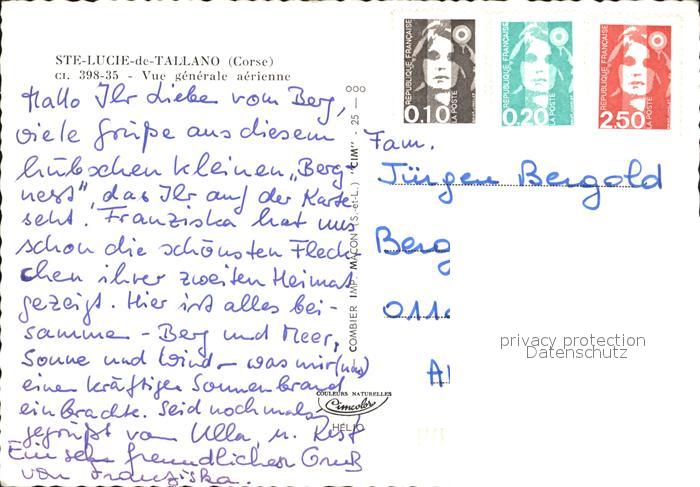 STE-LUCIE-de-TALLANO (Corse)
CL. 398-35 - Vue générale aérienne
Hallo Ihr Lieben vom Berg,
viele Grüße aus diesem
hübschen kleinen „Berg-
nest", das Ihr auf der Karte
seht. Franziska hat uns
schon die schönsten Fleck-
chen ihrer zweiten Heimat
gezeigt. Hier ist alles bei-
sammen - Berg und Meer,
Sonne und Wind - was mir (uns)
einen kräftigen Sonnenbrand
einbrachte. Seid nochmals
gegrüßt von Ulla, u. Rest
Ein sehr freundlicher Gruß
von Franziska.
COMBIER IMP. MACON (S.-et-L.) "CIM" - 25 -
COULEURS NATURELLES
Cimcolor
HÉLIO
RÉPUBLIQUE FRANÇAISE
0.10
LA POSTE
RÉPUBLIQUE FRANÇAISE
0.20
LA POSTE
RÉPUBLIQUE FRANÇAISE
2.50
LA POSTE
Fam.
Jürgen Bergold
Berg
011
privacy protection
Datenschutz